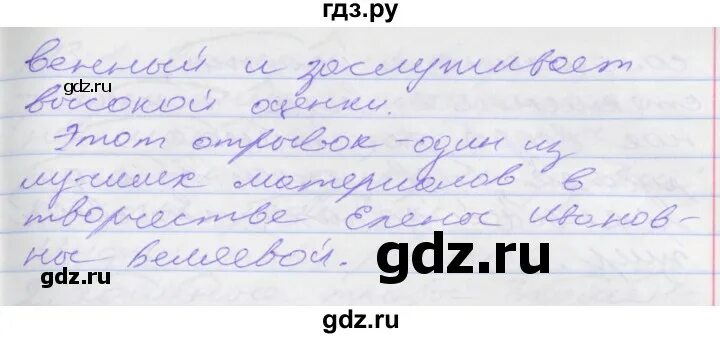 гдз.ру
венный и заслуживает
gdz.ru
gdz.ru
высокой оценки.
Этот отрывок - один из
лучших материалов в
творчестве Елены Иванов-
gdz.ru
ны Беляевой.
gdz.ru
gdz.ru